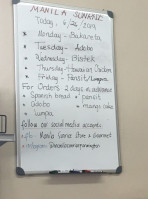 MANILA SUNRIZE
Today, 6/26/2019
Monday - Bakareta
Tuesday - Adobo
Wednesday - Bistek
Thursday - Hawaiian Chicken
Friday - Pansit/Lumpia
For Orders 2 days in advance
Spanish bread * pansit
Adobo * mango cake
Lumpia
Follow our social media accounts
Fb: Manila Sunrise store & Gourmet
Instagram: